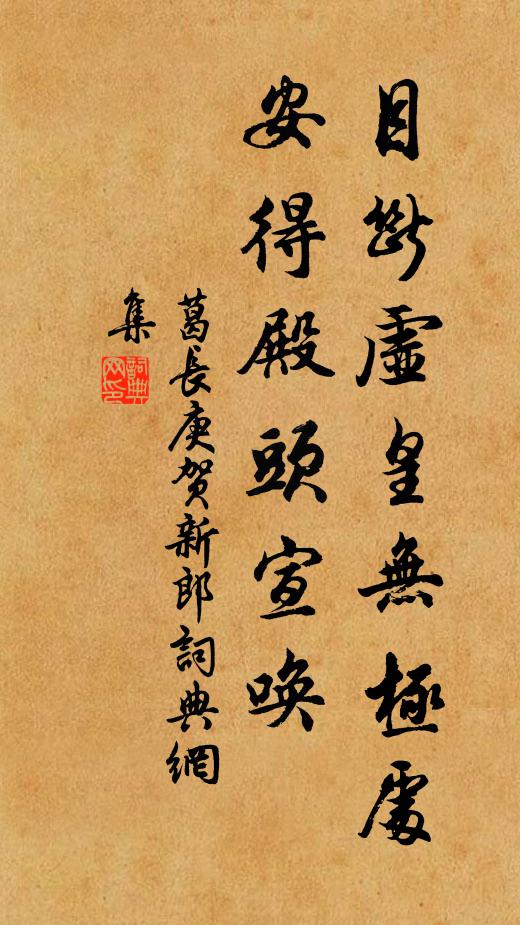 目斷虛皇無極處
安得殿頭宣喚
葛長庚賀新郎詞典網
集
詞典
网印